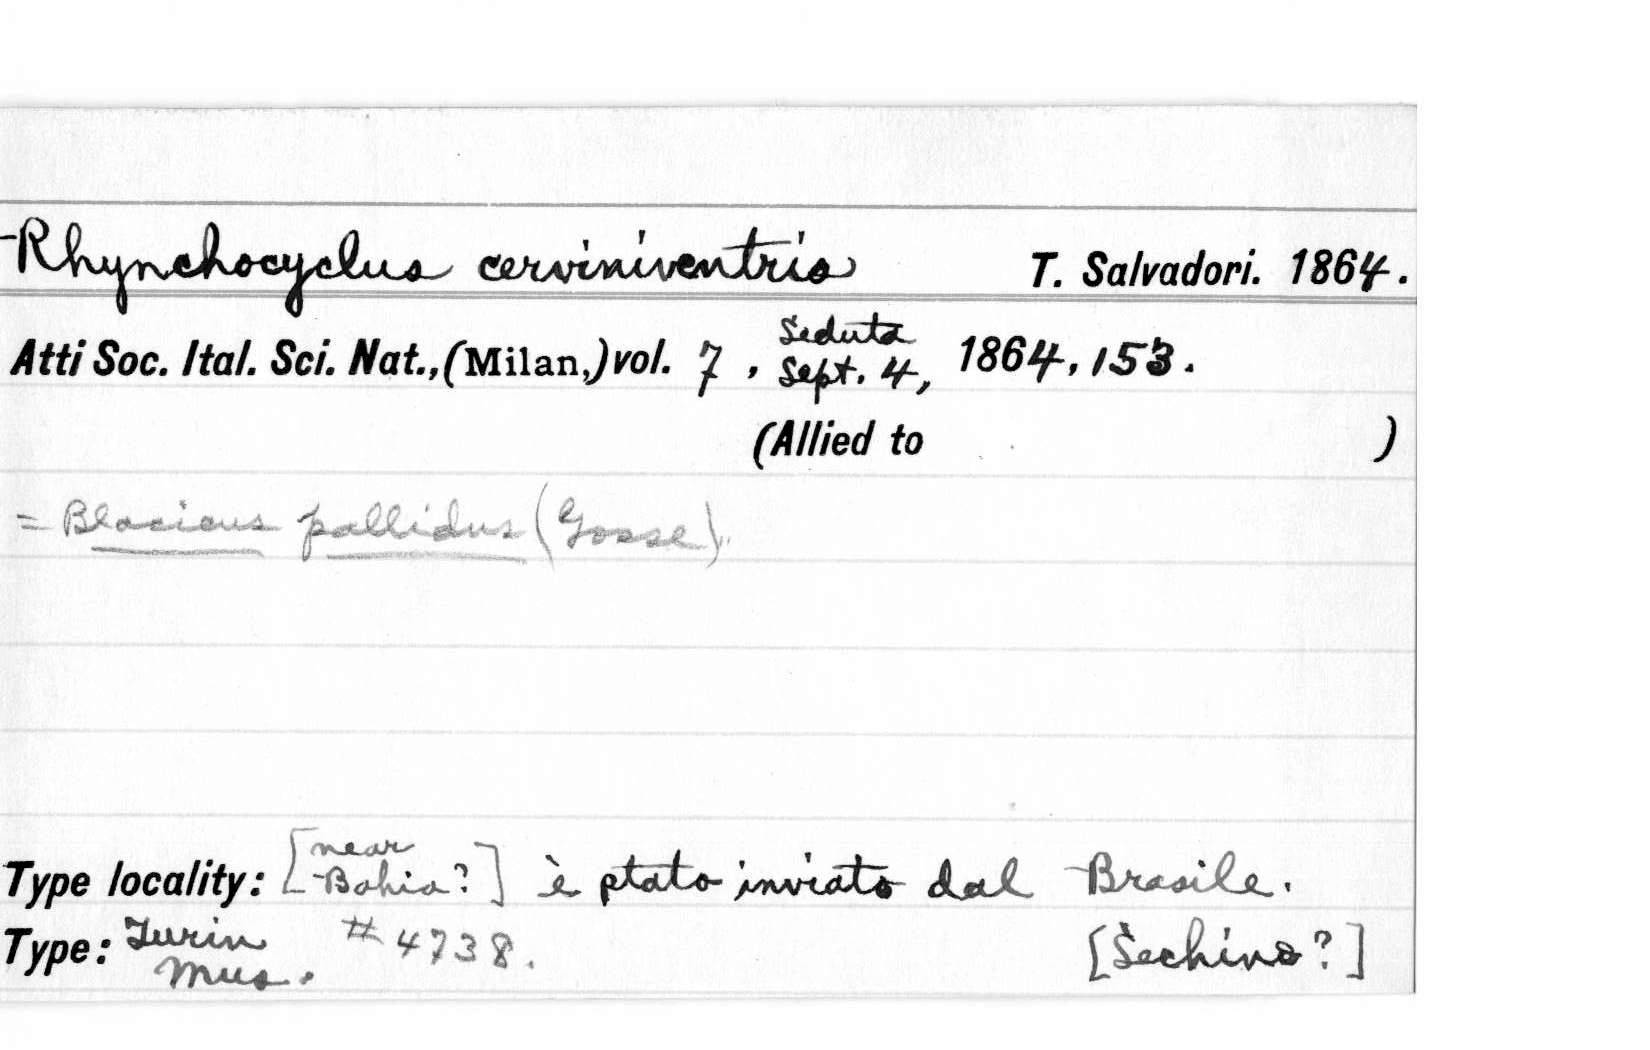 Rhynchocyclus cerviniventris T. Salvadori. 1864.
Atti Soc. Ital. Sci. Nat., (Milan,) vol. 7, Seduta Sept. 4, 1864, 153.
(Allied to )
= Blacicus pallidus (Gosse)
Type locality: [near Bahia?] è ptato inviato dal Brasile.
Type: Turin Mus. # 4738. [Sechino?]